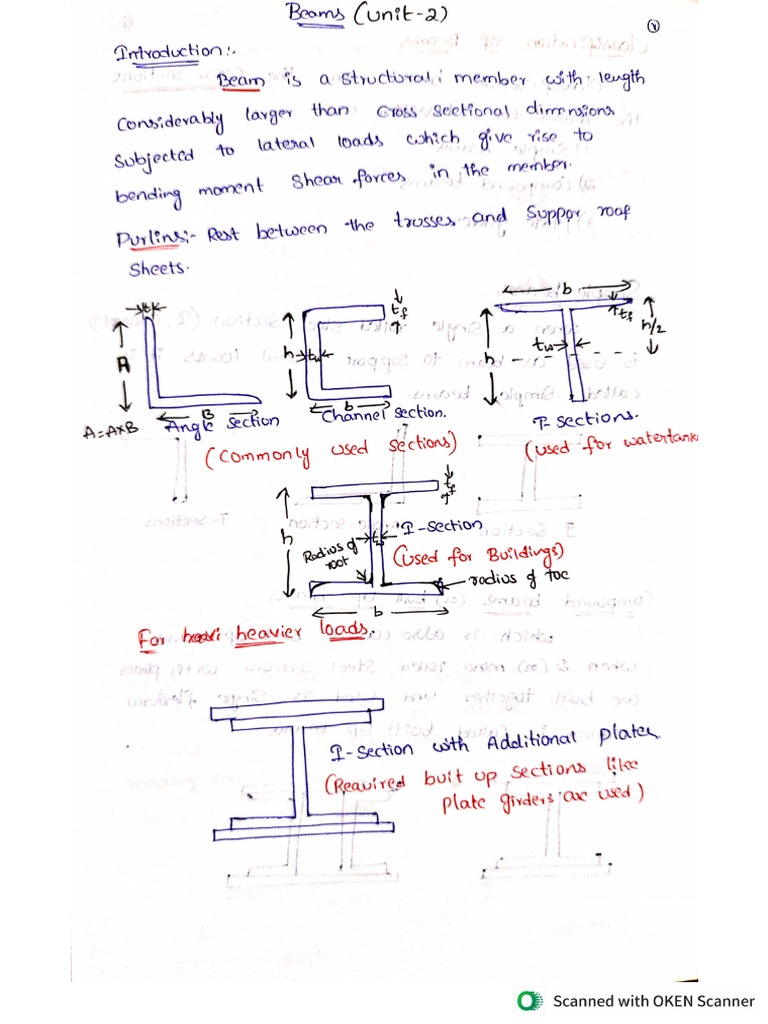 Beams (Unit-2)
Introduction:-
Beam is a structural member with length
considerably larger than cross sectional dimensions
subjected to lateral loads which give rise to
bending moment shear forces in the member.
Purlins:- Rest between the trusses and Suppor roof
Sheets.
t
A
B
A=A×B
Angle section
h
tw
tf
b
Channel section.
b
tf
h/2
tw
h
T-sections.
(commonly used sections)
(used for watertank
tf
h
I-section
Radius of
root
(used for Buildings)
radius of toe
b
For heavier loads.
I-section with Additional plates
(Required buit up sections like
plate girders are used)
Scanned with OKEN Scanner